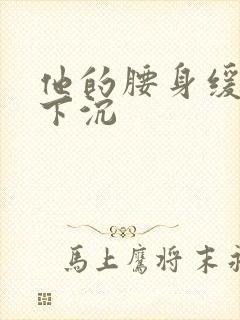 他的腰身缓
下沉
馬上鷹将末